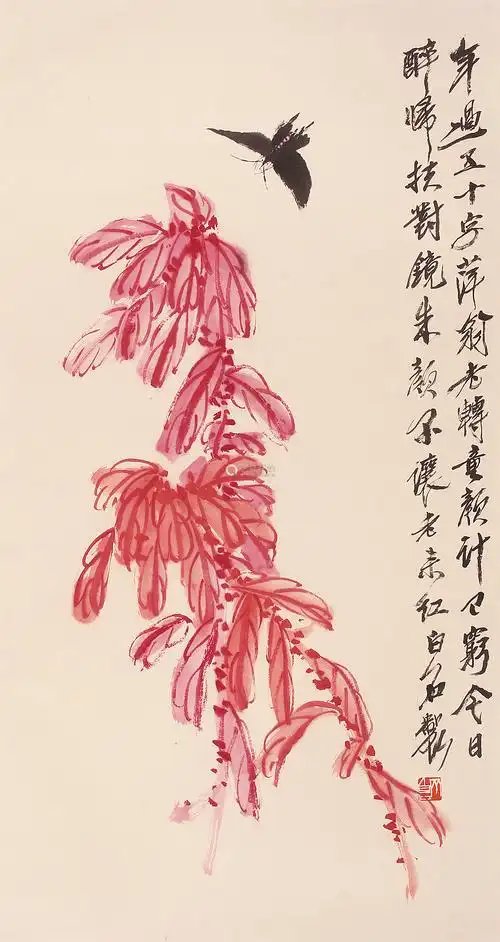 年過五十字萍翁老轉童顏計已窮今日
醉歸扶對鏡朱顏不讓老來紅白石製